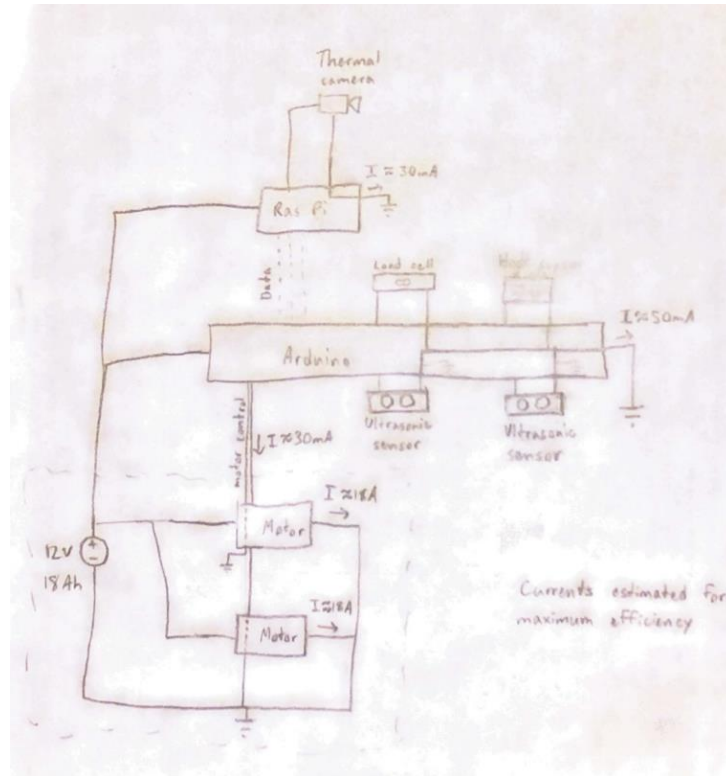 Thermal
camera
I ≈ 30mA
Ras Pi
Data
Load cell
I ≈ 50mA
Arduino
motor control
I ≈ 30mA
Ultrasonic
sensor
Ultrasonic
sensor
I ≈ 18A
Motor
12V
18Ah
I ≈ 18A
Motor
Currents estimated for
maximum efficiency